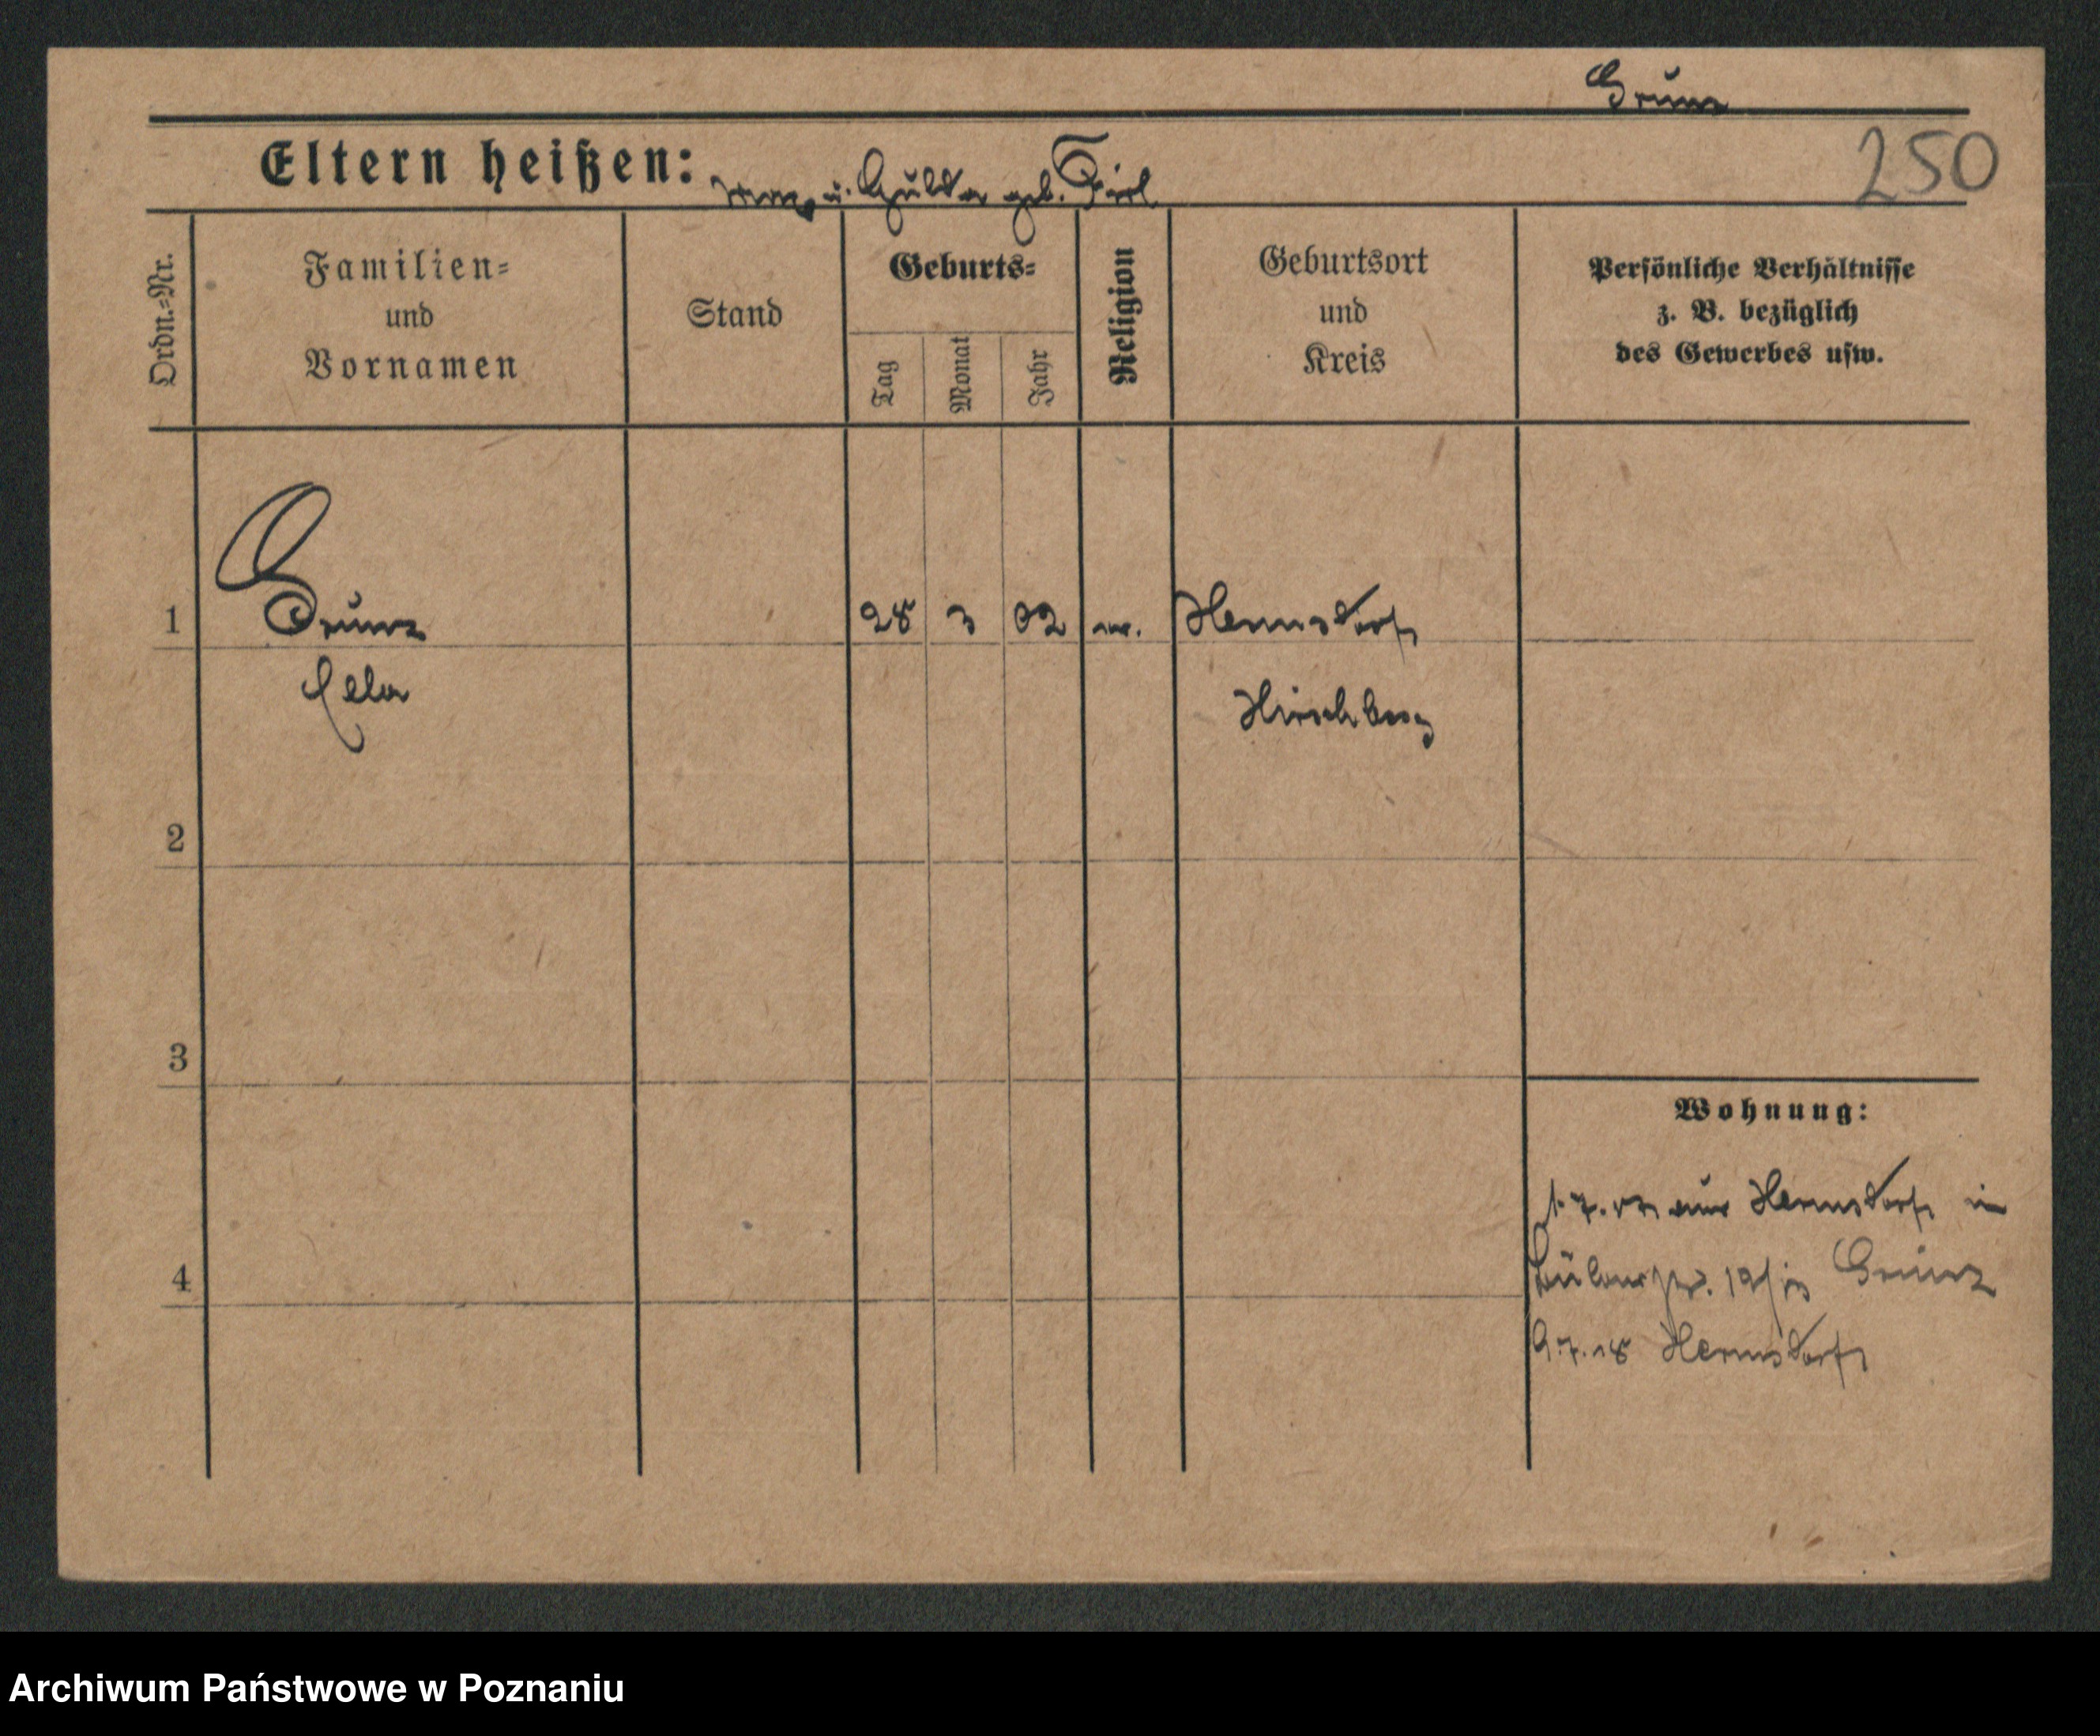 Grunz
250
Eltern heißen: u. Hulda geb.
Ordn.-Nr.
Familien-
und
Vornamen
Stand
Geburts-
Tag
Monat
Jahr
Religion
Geburtsort
und
Kreis
Persönliche Verhältnisse
z. B. bezüglich
des Gewerbes usw.
1
Grunz
28 3 02
Hermsdorf
Ella
Hirschberg
2
3
4
Wohnung:
1.7. aus Hermsdorf in
Grunz
9.7.18 Hermsdorf
Archiwum Państwowe w Poznaniu